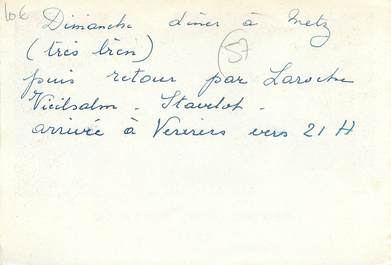 10€ Dimanche dîner à Metz
(très bien) 57
puis retour par Laroche
Vielsalm - Stavelot -
arrivée à Verviers vers 21 H